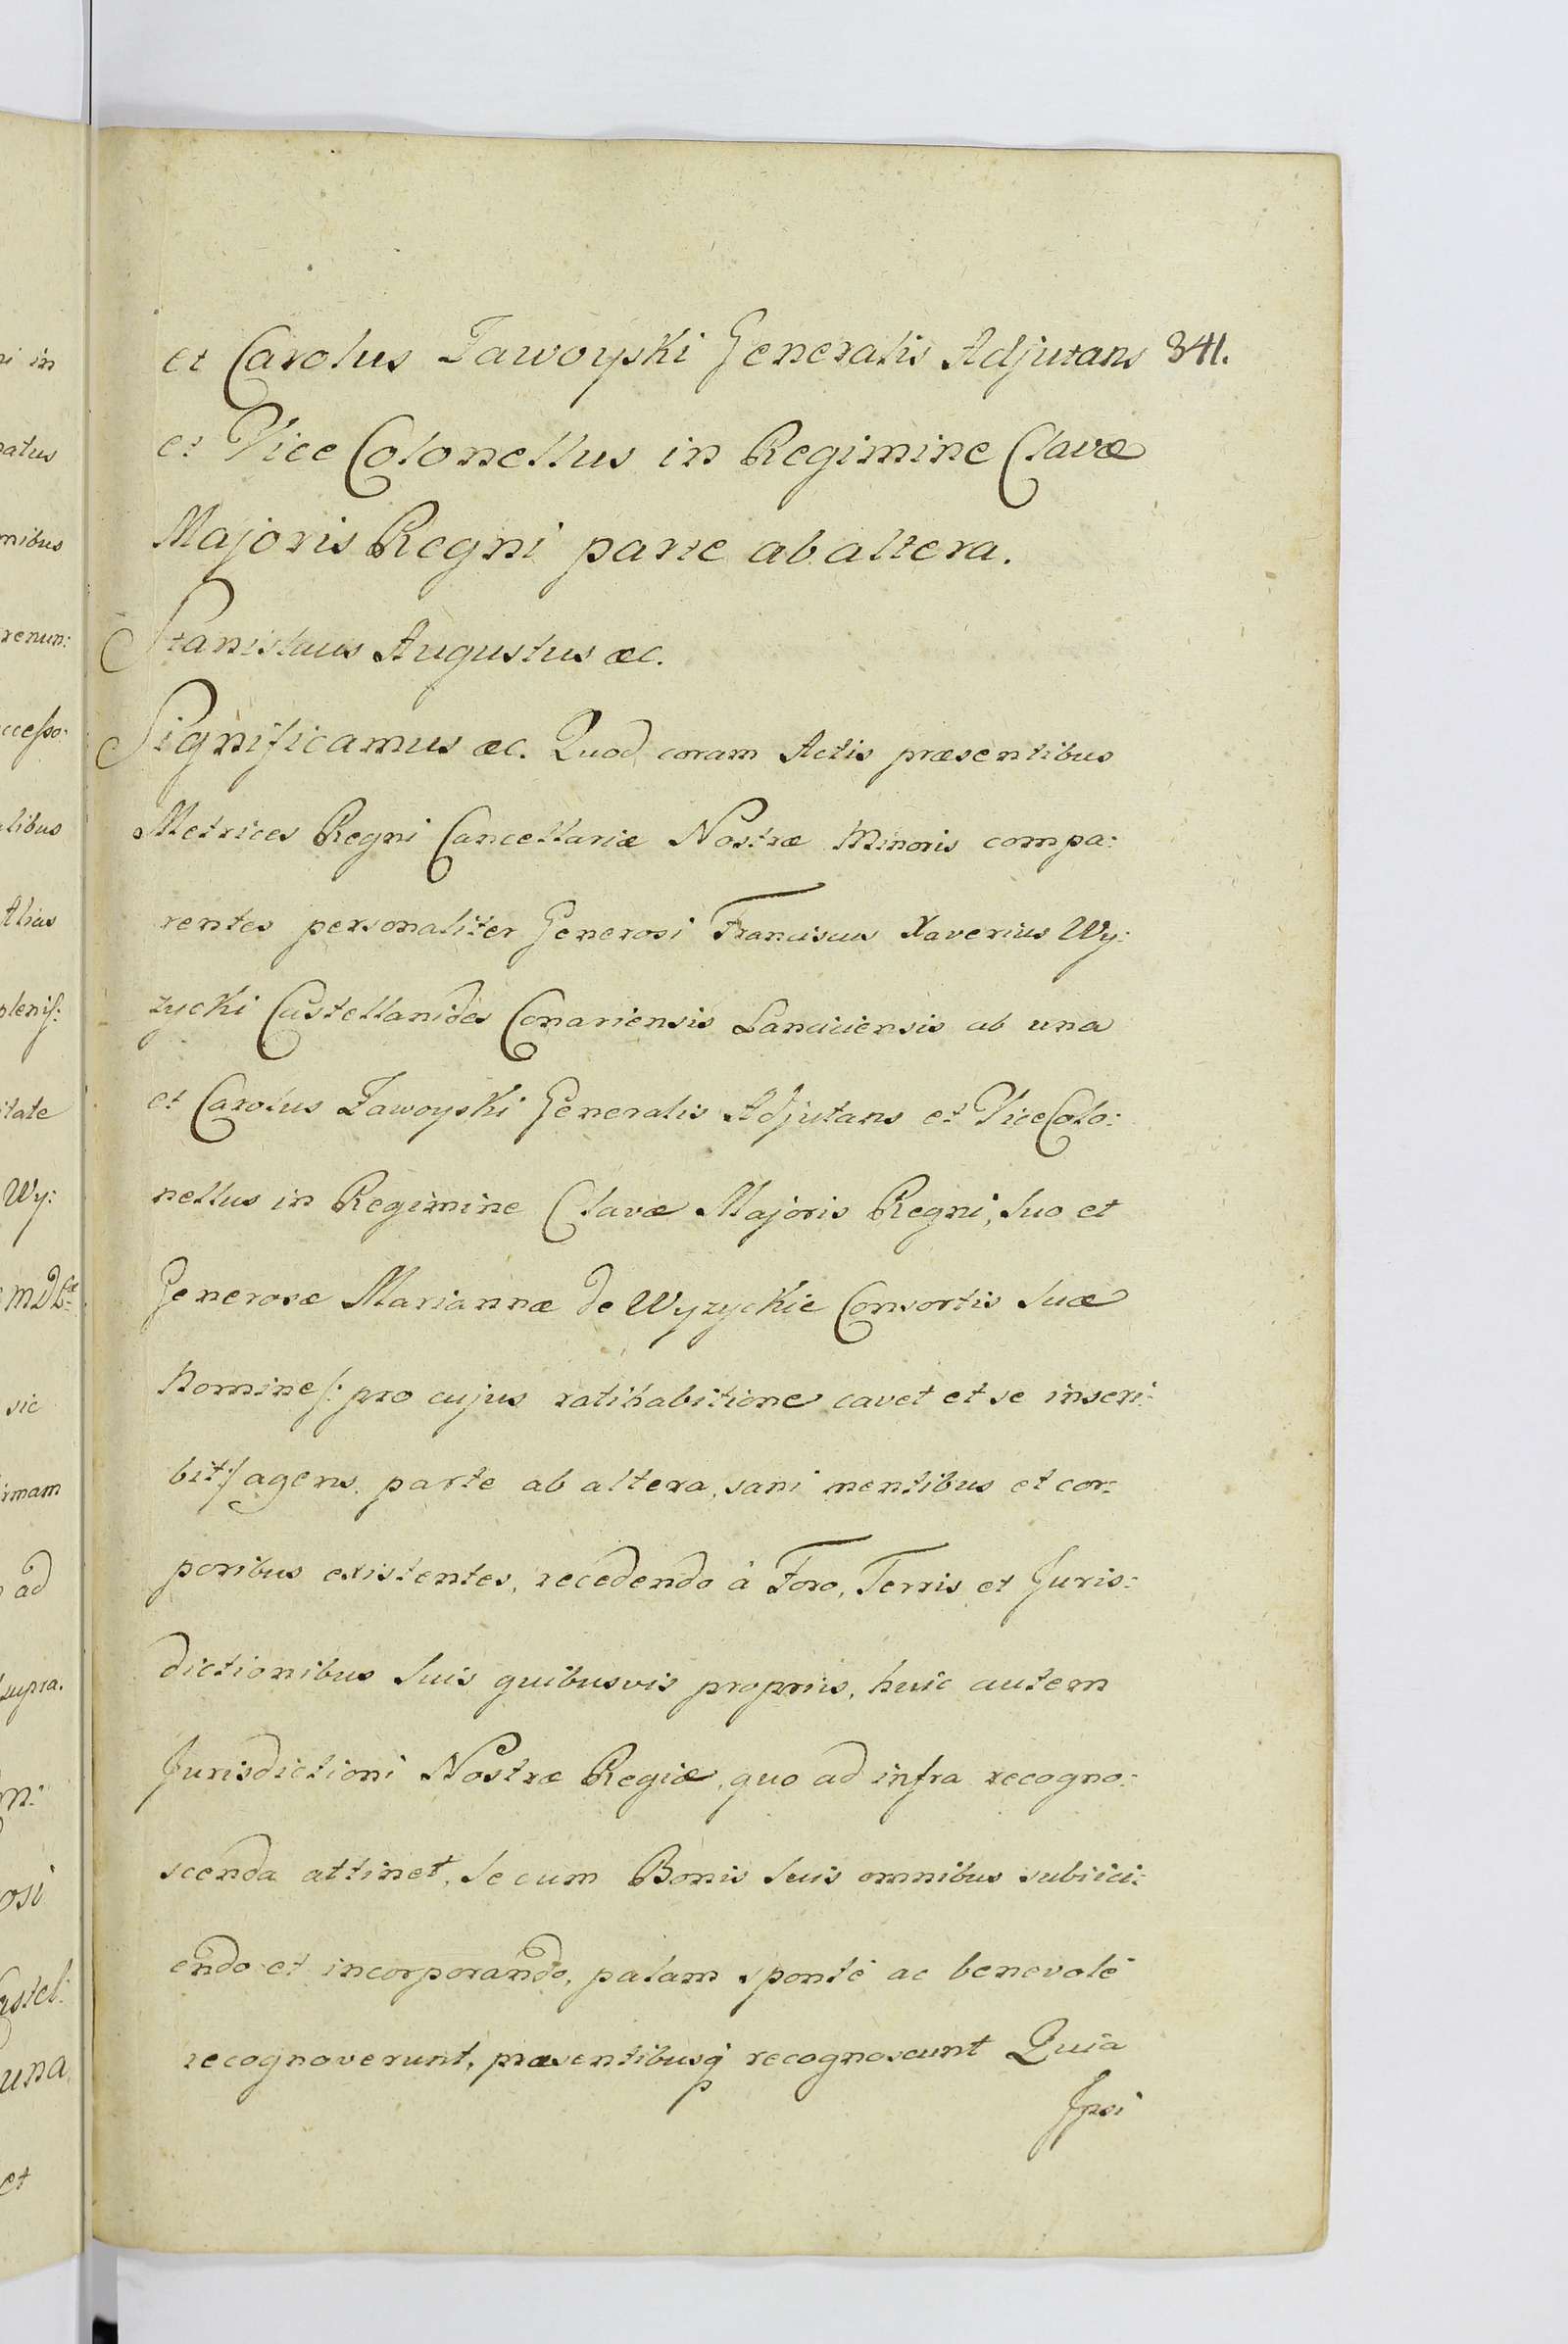 et Carolus Jawoyski Generalis Adjutans 341.
et Vice Colonellus in Regimine Clavæ
Majoris Regni parte ab altera.
Stanislaus Augustus æc.
Significamus æc. Quod coram Actis præsentibus
Metrices Regni Cancellariæ Nostræ Minoris compa:
rentes personaliter Generosi Franciscus Xaverius Wy:
zycki Castellanides Conariensis Lanciciensis ab una
et Carolus Jawoyski Generalis Adjutans et Vice Colo:
nellus in Regimine Clavæ Majoris Regni, suo et
Generosæ Mariannæ de Wyzyckie Consortis suæ
Nomine /: pro cujus ratihabitione cavet et se inscri:
bit :/ agens, parte ab altera, sani mentibus et cor:
poribus existentes, recedendo à Foro, Terris et Juris:
dictionibus suis quibusvis propriis, huic autem
Jurisdictioni Nostræ Regiæ, quo ad infra recogno:
scenda attinet, se cum Bonis suis omnibus subiici:
endo et incorporando, palam spontè ac benevolè
recognoverunt, præsentibusq recognoscunt Quia
Ipsi
ni in
natus
nibus
renun:
ccesso:
alibus
Alias
pleniss:
itate
Wy:
sic
imam
ad
supra.
m:
osi
astel:
una
et